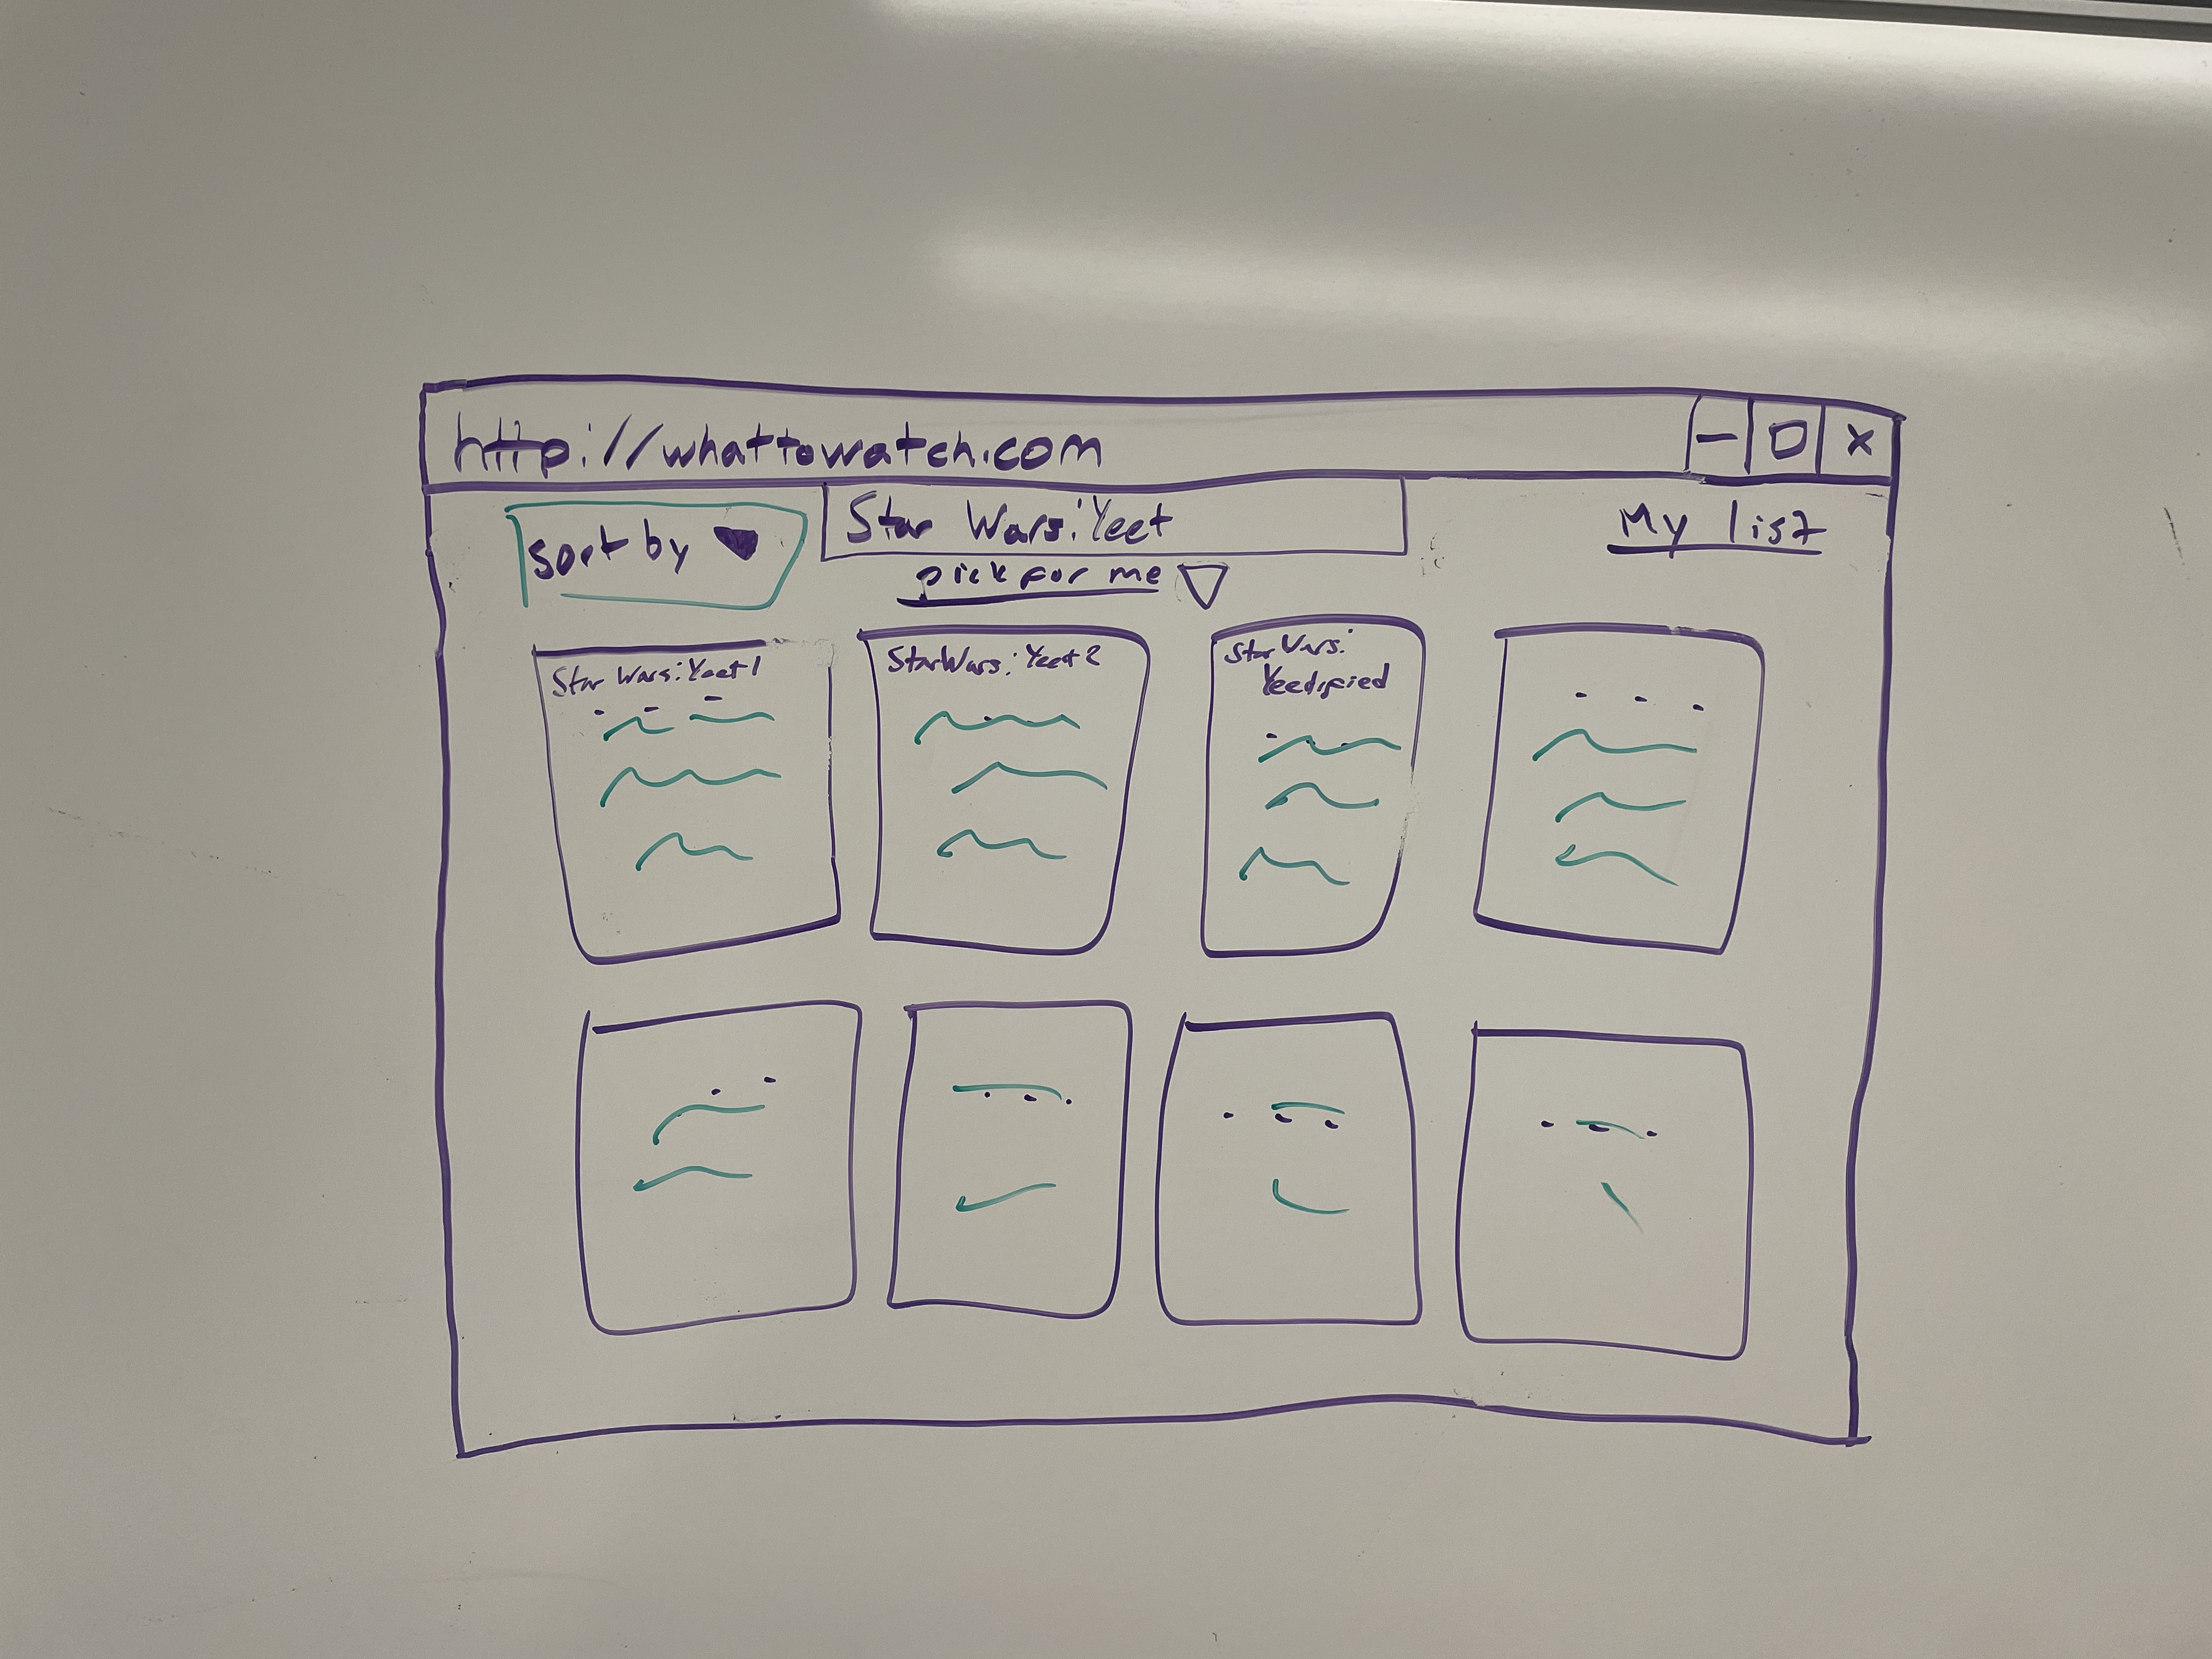 http://whattowatch.com
sort by
Star Wars: Yeet
My list
pick for me
Star Wars: Yeet 1
Star Wars: Yeet 2
Star Wars:
Yeedified